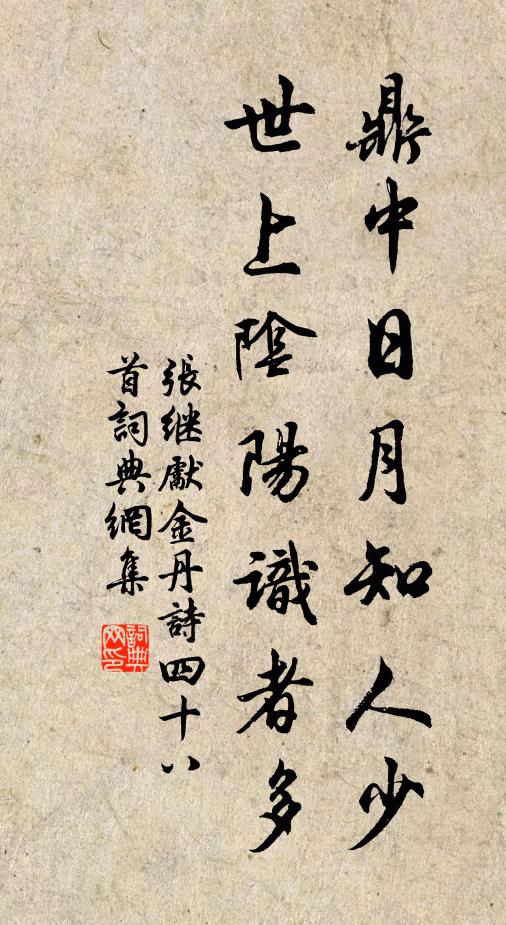 鼎中日月知人少
世上陰陽識者多
張继獻金丹詩四十八
首詞典網集
詞典
网印